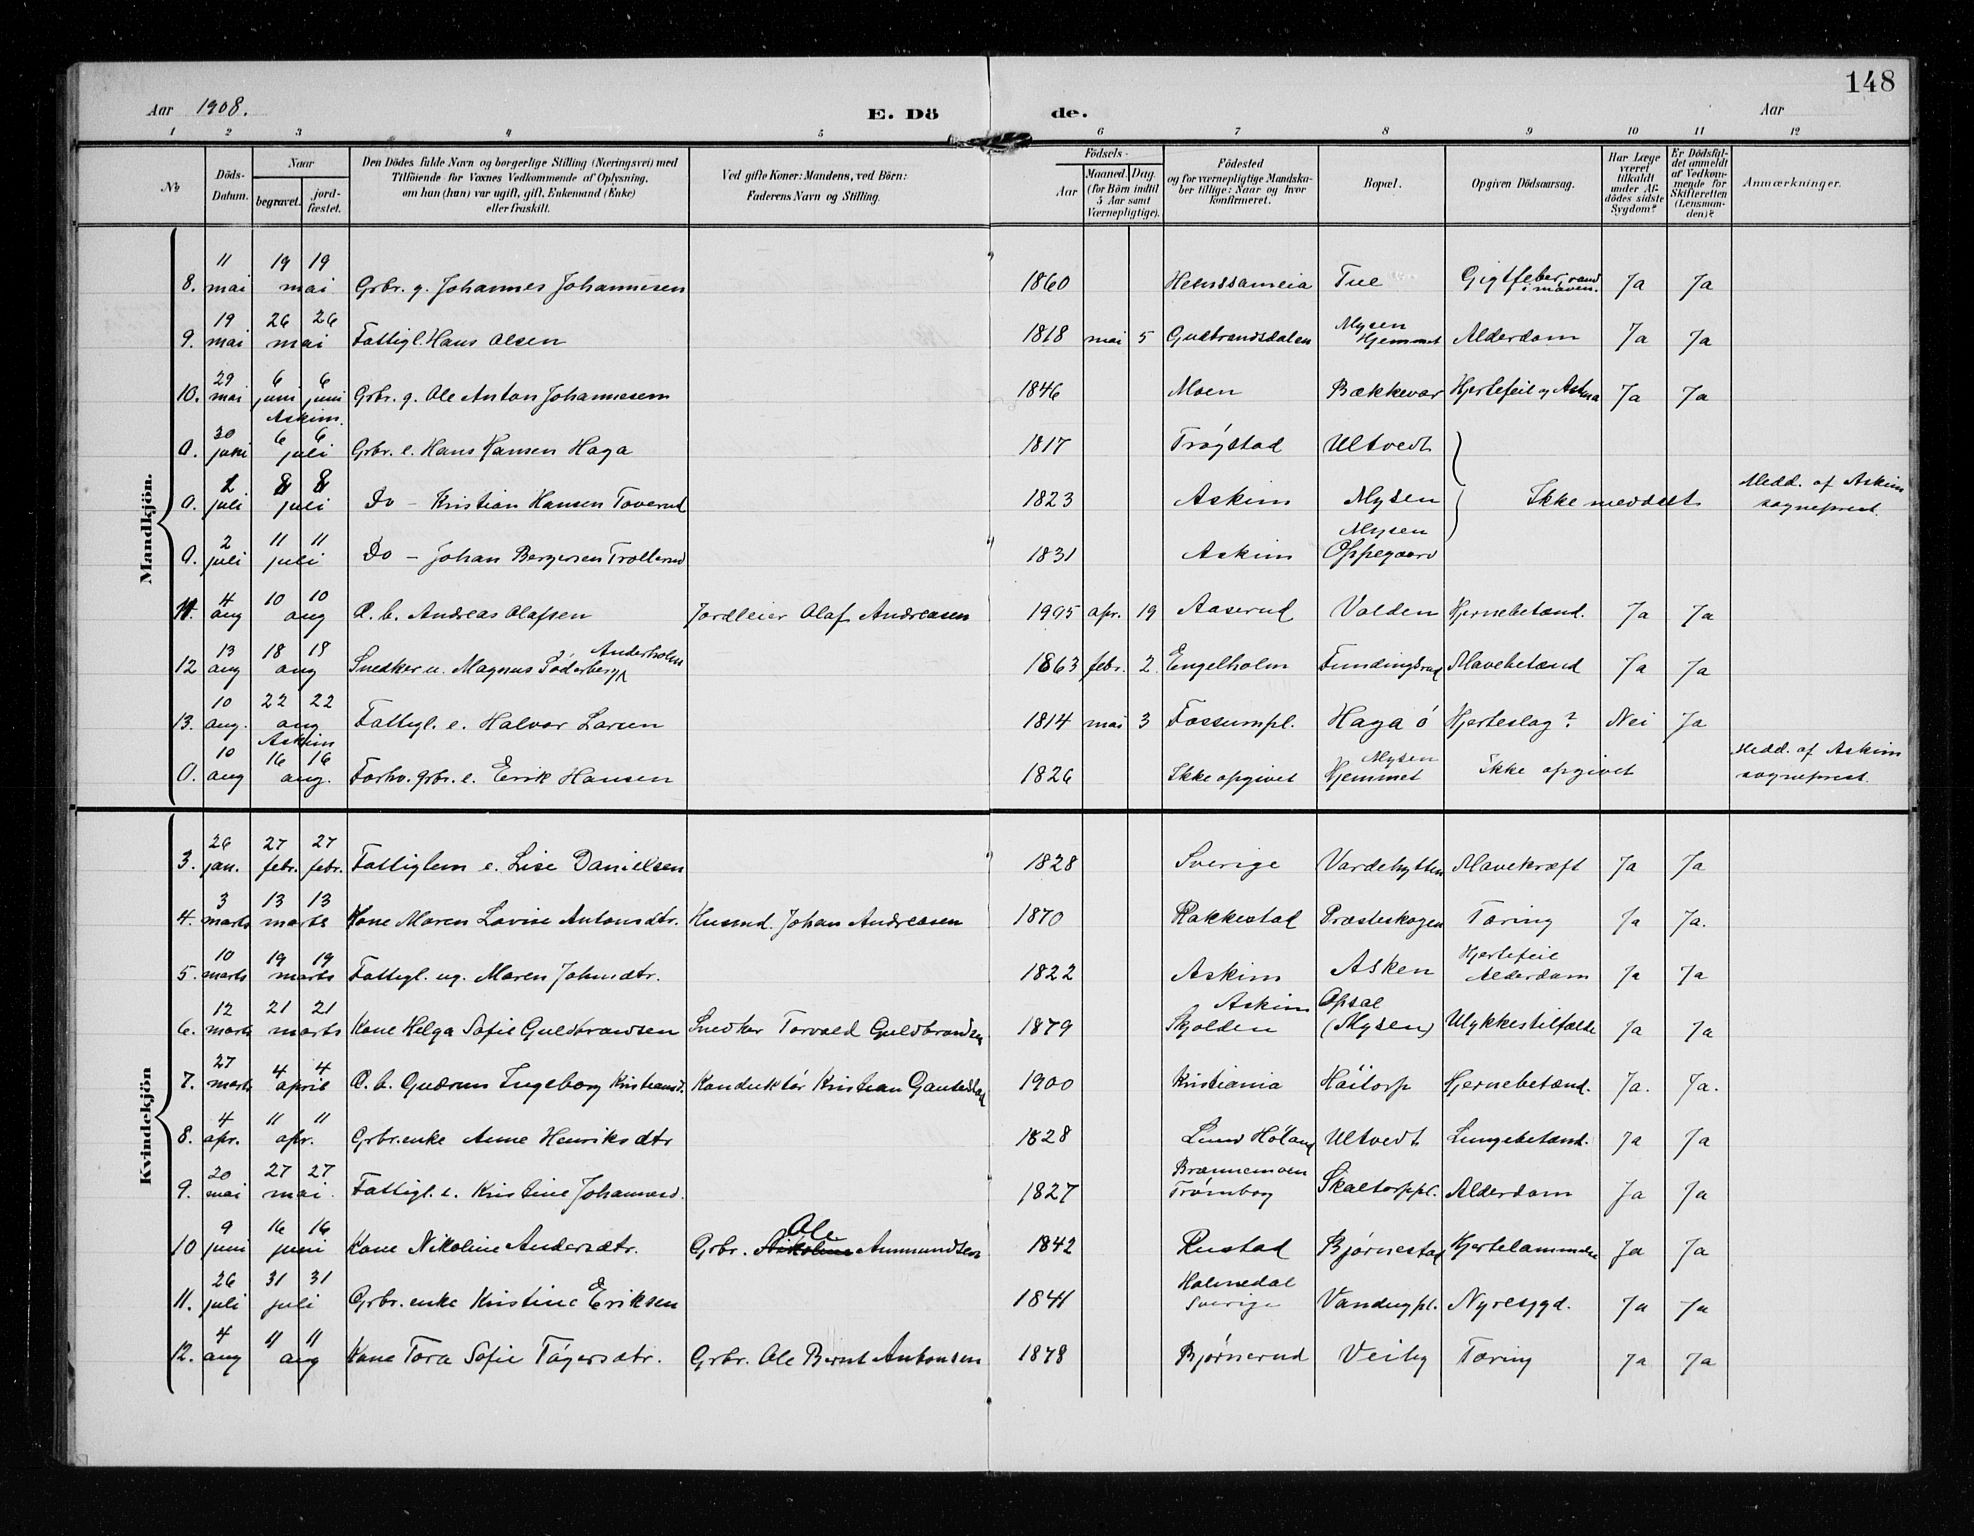 148
Aar 1908. E. Dö de. Aar
1 2 3 4 5 6 7 8 9 10 11 12
No
Döds-Datum.
Naar
begravet.
jord-fæstet.
Den Dödes fulde Navn og borgerlige Stilling (Næringsvei) med
Tilföiende for Voxnes Vedkommende af Oplysning,
om han (hun) var ugift, gift, Enkemand (Enke)
eller fraskilt.
Ved gifte Koner: Mandens, ved Börn:
Faderens Navn og Stilling.
Födsels-
Aar
Maaned. Dag.
(for Börn indtil
5 Aar samt
Værnepligtige).
Födested
og for værnepligtige Mandska-
ber tillige: Naar og hvor
konfirmeret.
Bopæl.
Opgiven Dödsaarsag.
Har Læge
været
tilkaldt
under Af-
dödes sidste
Sygdom?
Er Dödsfal-
det anmeldt
af Vedkom-
mende for
Skifteretten
(Lensman-
den)?
Anmærkninger.
Mandkjön.
8. 11 mai 19 19 mai Grbr. g. Johannes Johannesen 1860 Tue Gigtfeber, vand i maven. Ja Ja
9. 19 mai 26 26 mai Fattigl. Hans Olsen 1818 mai 5 Gudbrandsdalen Mysen Hjemmet Alderdom Ja Ja
10. 29 mai 6 juni 6 juni Grbr. g. Ole Anton Johannesen 1846 Moen Bækkevar Hjertefeil og Astma Ja Ja
Askim.
0. 30 juni 6 6 juli Grbr. e. Hans Hansen Haga 1817 Trøgstad Ultvedt
0. juli 8 8 juli Do - Kristian Hansen Toverud 1823 Askim Mysen Ikke meddelt Medd. af Askim sogneprest.
0. 2 juli 11 11 juli Do - Johan Bergersen Trollerud 1831 Askim Mysen Oppegaard
11. 4 aug 10 10 aug Æ. b. Andreas Olafsen Jordleier Olaf Andreasen 1905 apr. 19 Aaserud Volden Hjernebetænd. Ja Ja
12 13 aug 18 18 aug Snedker u. Magnus Söderberg Anderholm 1863 febr. 2. Engelholm Fundingsrud Mavebetænd Ja Ja
13. 10 aug. 22 22 aug Fattigl. e. Halvor Larsen 1814 mai 3 Fossumpl. Haga ö Hjerteslag? Nei Ja
Askim
0. 10 aug 16 16 aug. Forhv. grbr. e. Erik Hansen 1826 Ikke opgivet Mysen Hjemmet Ikke opgivet Medd. af Askim sogneprest.
Kvindekjön
3. 26 jan. 27 febr. 27 febr. Fattiglem e. Lise Danielsen 1828 Sverige Vardehytten Mavekræft Ja Ja
4. 3 marts 13 13 marts Kone Maren Lovise Antonsdtr. Husmd. Johan Andreasen 1870 Rakkestad Præsteskogen Tæring Ja Ja.
5. 10 marts 19 19 marts Fattigl. ug. Maren Johnsdtr. 1822 Askim Asken Hjertefeil Alderdom Ja Ja
6. 12 marts 21 21 marts Kone Helga Sofie Guldbrandsen Snedker Torvald Guldbrandsen 1879 Askim Skjolden Opsal (Mysen) Ulykkestilfælde Ja Ja
7. 27 marts 4 4 april Æ. b. Gudrun Ingeborg Kristiansd. Konduktör Kristian Gautestad 1900 Kristiania Höitorp Hjernebetænd. Ja. Ja.
8. 4 apr. 11 11 apr. Grbr.enke Anne Henriksdtr 1828 Lund Höland Ultvedt Lungebetænd. Ja Ja
9. 20 mai 27 27 mai. Fattigl. e. Kristine Johannesd. 1827 Brænnemoen Trømborg Skaltorppl. Alderdom Ja Ja
10 9 juni 16 16 juni Kone Nikoline Andersdtr. Grbr. Ole Ammundsen 1842 Rustad Bjørnestad Hjertelammelse Ja Ja
11. 26 juli 31 31 juli Grbr.enke Kristine Eriksen 1841 Holmedal Sverige Vandugpl. Nyresygd. Ja Ja
12. 4 aug 11 11 aug Kone Tora Sofie Tögersdtr. Grbr. Ole Bernt Antonsen 1878 Bjørnerud Veiby Tæring Ja Ja